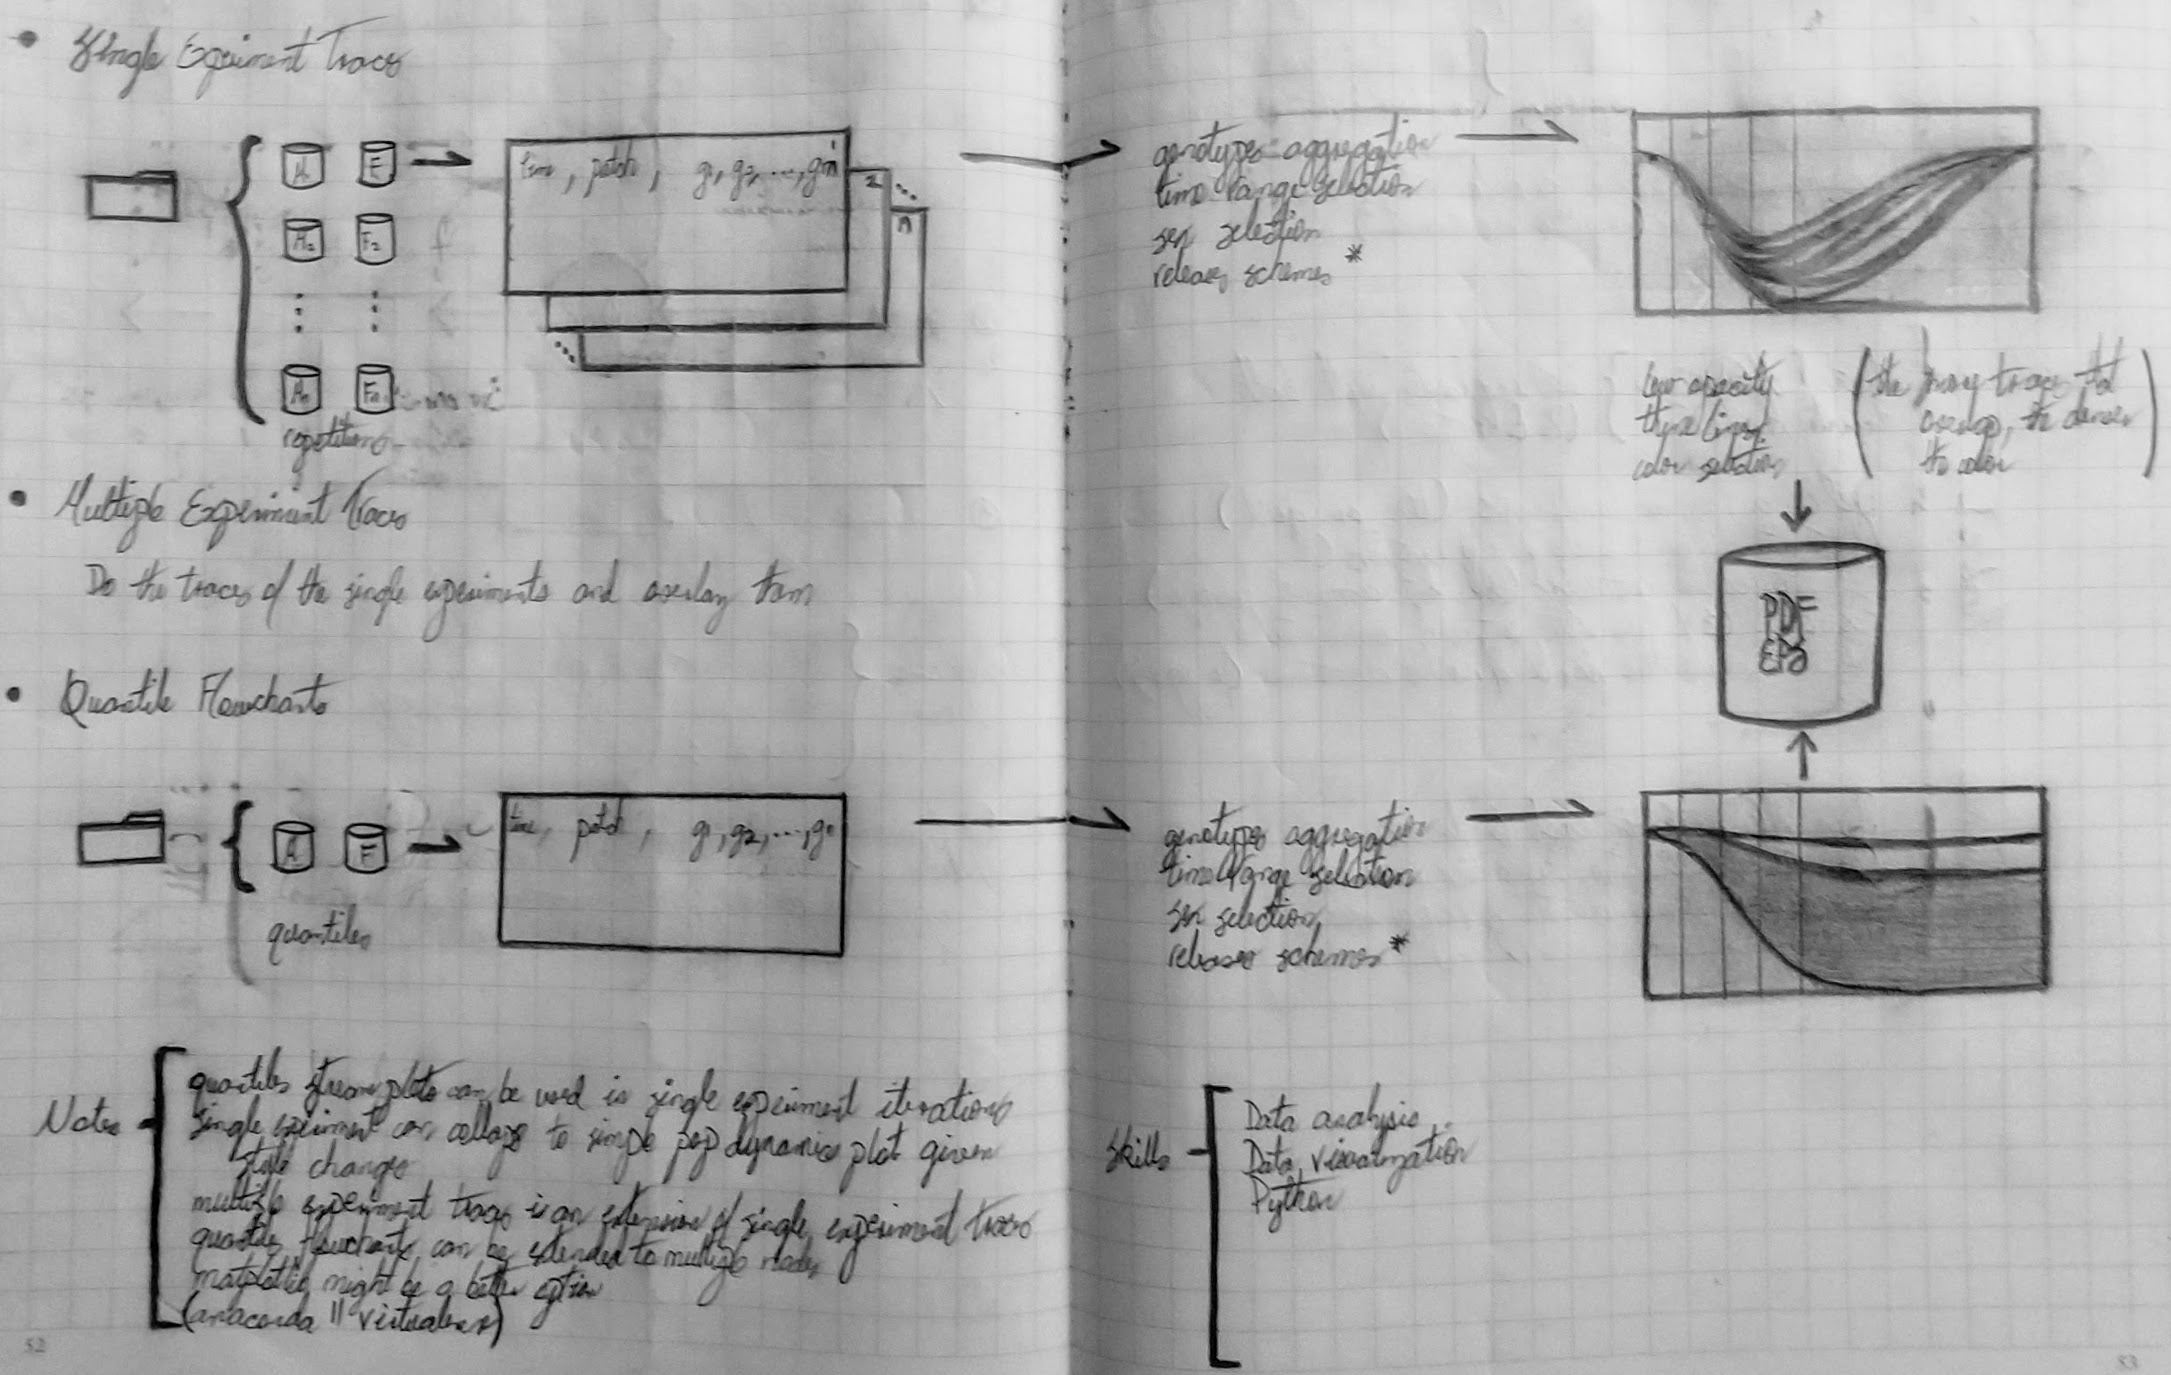 Single Experiment Traces
A1 F
A2 F2
An Fn
repetitions
time, patch, g1, g2, ..., gm
2
n
genotypes aggregation
time range selection
sex selection
releases schemes *
low opacity
thin lines
color selection
(the more traces that
overlap, the denser
the color)
Multiple Experiment Traces
Do the traces of the single experiments and overlay them
PDF
EPS
Quantile Flowcharts
A F
quantiles
time, patch, g1, g2, ..., gn
genotypes aggregation
time range selection
sex selection
releases schemes *
Notes
quantiles streamplots can be used is single experiment iterations
single experiment can collapse to simple pop dynamics plot given
style changes
multiple experiment traces is an extension of single experiment traces
quantiles flowcharts can be extended to multiple nodes
matplotlib might be a better option
(anaconda || virtualenv)
Skills
Data analysis
Data visualization
Python
52
53